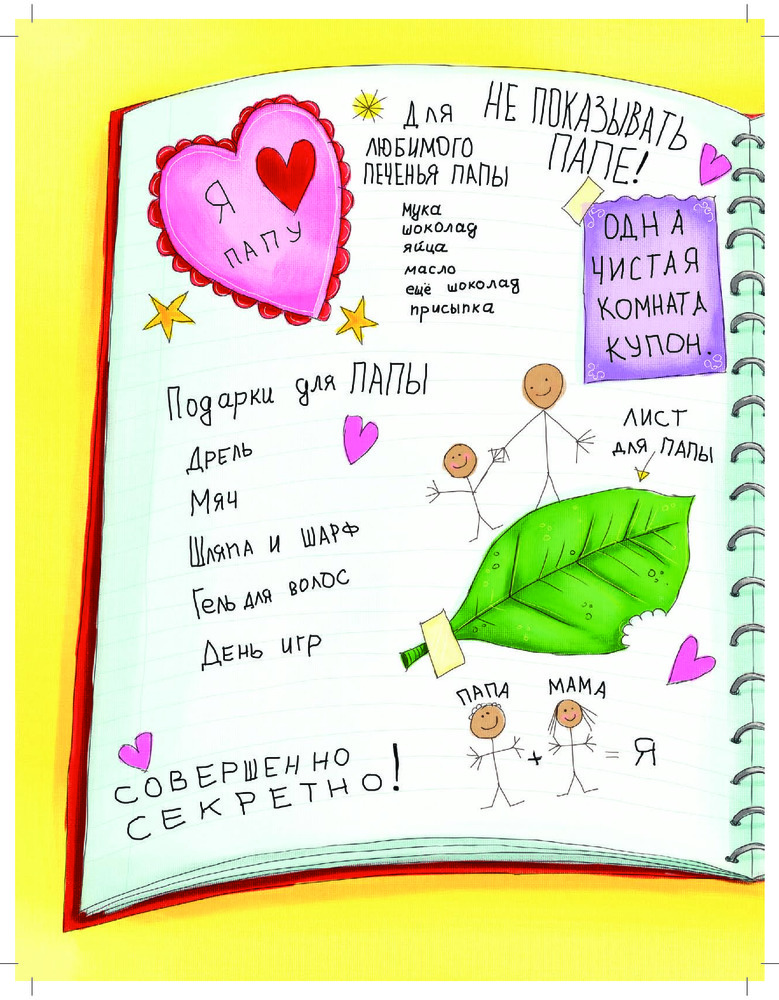 Я
ПАПУ
Для
ЛЮБИМОГО
ПЕЧЕНЬЯ ПАПЫ
мука
шоколад
яйца
масло
ещё шоколад
присыпка
НЕ ПОКАЗЫВАТЬ
ПАПЕ!
ОДНА
ЧИСТАЯ
КОМНАТА
КУПОН.
Подарки для ПАПЫ
Дрель
Мяч
Шляпа и шарф
Гель для волос
День игр
ЛИСТ
для ПАПЫ
ПАПА МАМА
+ = Я
СОВЕРШЕННО
СЕКРЕТНО!